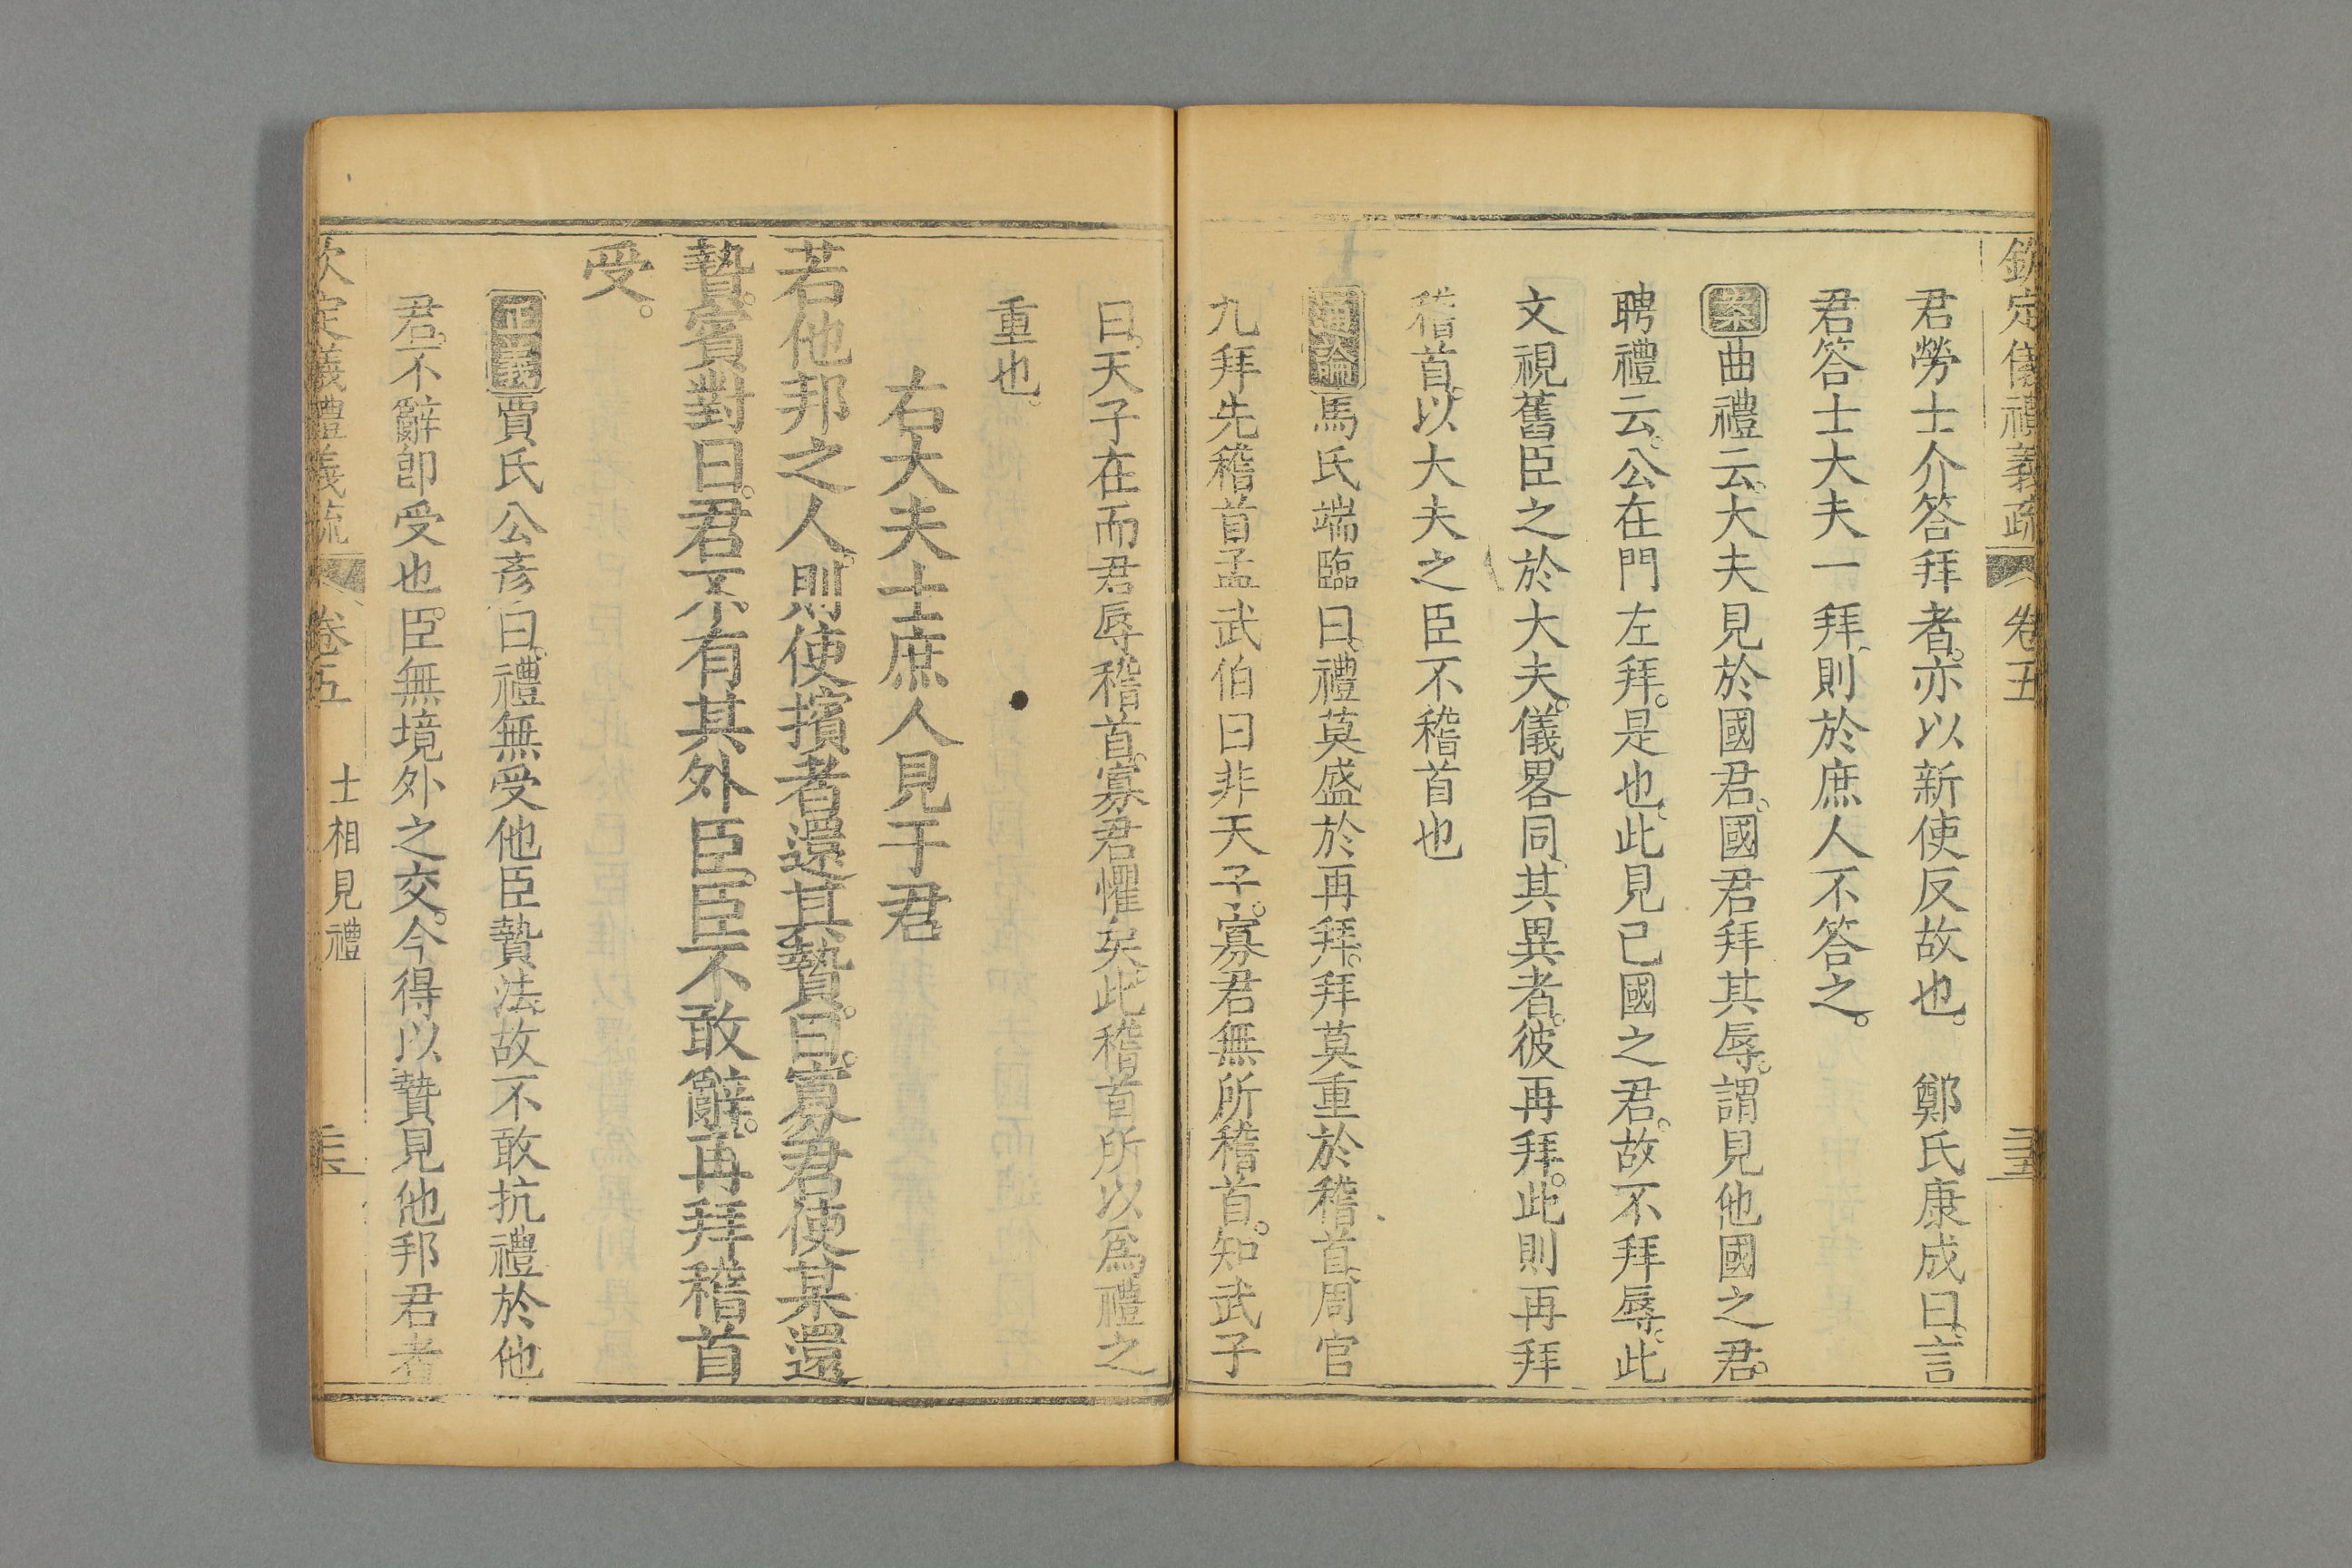 欽定儀禮義疏 卷五
君勞士介答拜者。亦以新使反故也。 鄭氏康成曰。言
君答士大夫一拜。則於庶人不答之。
案曲禮云。大夫見於國君。國君拜其辱。謂見他國之君。
聘禮云。公在門左拜。是也。此見已國之君。故不拜辱。此
文視舊臣之於大夫。儀畧同。其異者。彼再拜。此則再拜
稽首。以大夫之臣不稽首也
通論馬氏端臨曰。禮莫盛於再拜。拜莫重於稽首。周官
九拜先稽首孟武伯曰非天子。寡君無所稽首。知武子
曰。天子在而君辱稽首。寡君懼矣。此稽首所以爲禮之
重也。
右大夫士庶人見于君
若他邦之人。則使擯者還其贄。曰。寡君使某還
贄。賓對曰。君不有其外臣。臣不敢辭。再拜稽首
受。
正義賈氏公彥曰。禮無受他臣贄法。故不敢抗禮於他
君。不辭卽受也。臣無境外之交。今得以贄見他邦君者
欽定儀禮義疏 卷五 士相見禮